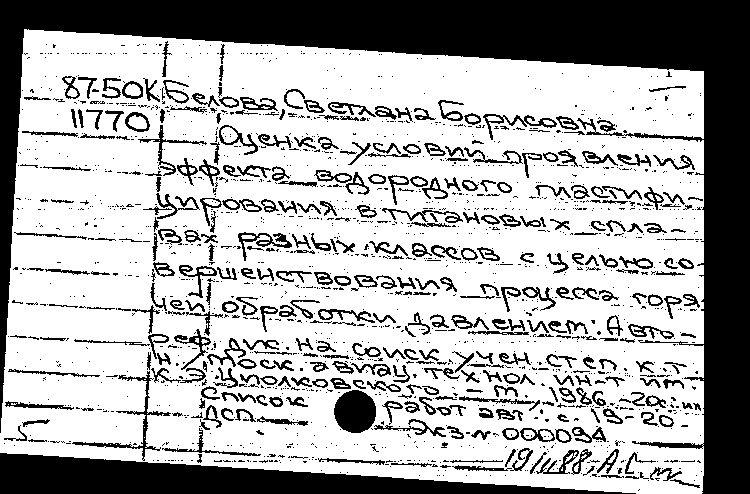 87-50К Белова, Светлана Борисовна.
11770 Оценка условий проявления
эффекта водородного пластифи-
цирования в титановых спла-
вах разных классов с целью со-
вершенствования процесса горя-
чей обработки давлением: Авто-
реф. дис. на соиск. учен. степ. к.т.
н. / Моск. авиац. технол. ин-т им.
К.Э. Циолковского. - М., 1986. - 20с.: ил
Список работ авт.: с. 19-20.
ДСП. Экз. № 000094
5
88, А.С.